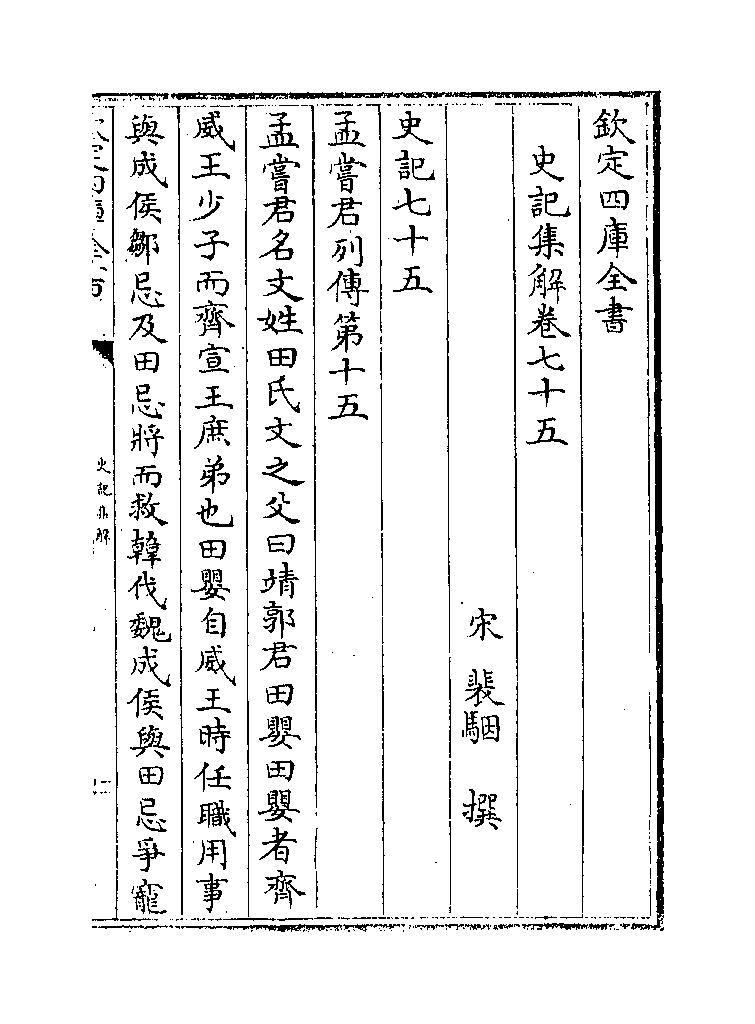 欽定四庫全書
史記集解卷七十五
宋 裴駰 撰
史記七十五
孟嘗君列傳第十五
孟嘗君名文姓田氏文之父曰靖郭君田嬰田嬰者齊
威王少子而齊宣王庶弟也田嬰自威王時任職用事
與成侯鄒忌及田忌將而救韓伐魏成侯與田忌爭寵
史記集解